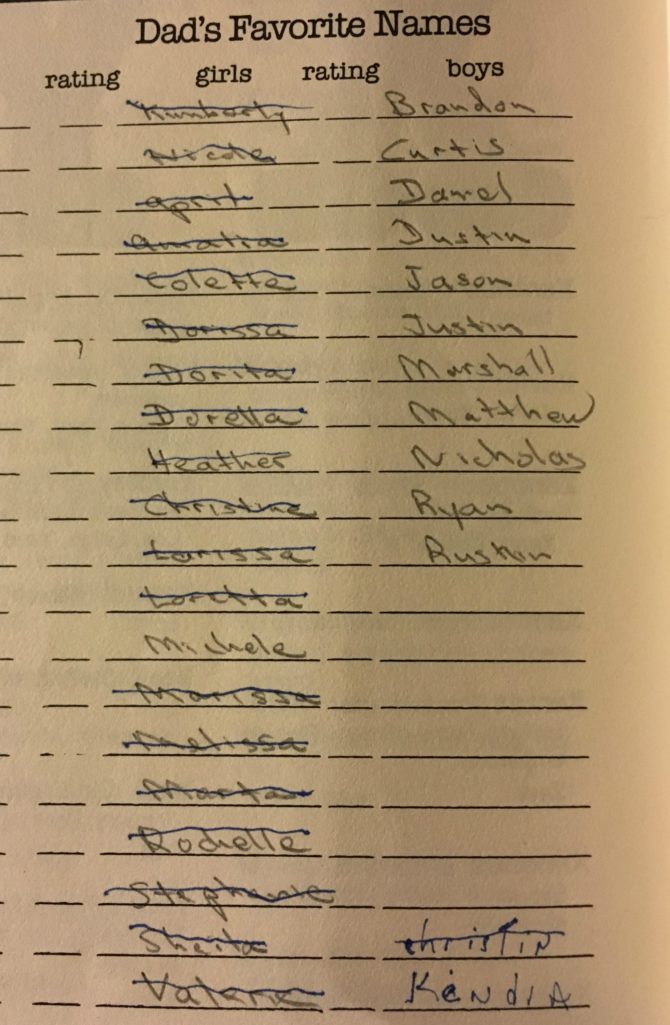 Dad's Favorite Names
rating girls rating boys
Kimberly Brandon
Nicole Curtis
April Daniel
Amatia Dustin
Colette Jason
Dorissa Justin
Dorita Marshall
Doretta Matthew
Heather Nicholas
Christine Ryan
Larissa Rustin
Loretta
Michele
Marissa
Melissa
Marta
Rochelle
Stephanie
Sheila christin
Valerie KENdIA